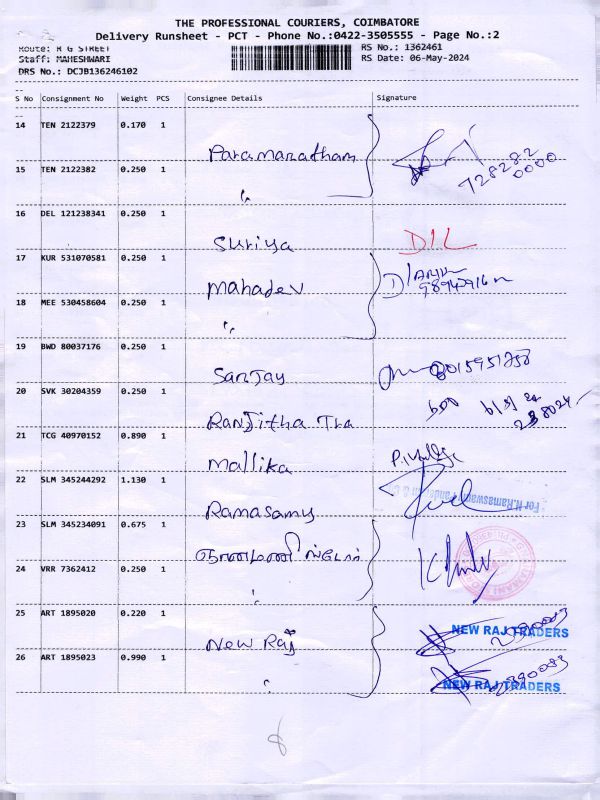 THE PROFESSIONAL COURIERS, COIMBATORE
Delivery Runsheet - PCT - Phone No.:0422-3505555 - Page No.:2
Route: R G STREET
RS No.: 1362461
Staff: MAHESHWARI
RS Date: 06-May-2024
DRS No.: DCJB136246102
S No Consignment No Weight PCS Consignee Details Signature
14 TEN 2122379 0.170 1
Paramanatham
728282
0000
15 TEN 2122382 0.250 1
"
16 DEL 121238341 0.250 1
Suriya DIL
17 KUR 531070581 0.250 1
Mahadev
18 MEE 530458604 0.250 1
"
19 BWD 80037176 0.250 1
Sanjay
20 SVK 30204359 0.250 1
Ranjitha Tra
21 TCG 40970152 0.890 1
Mallika
22 SLM 345244292 1.130 1
Ramasamy
23 SLM 345234091 0.675 1
24 VRR 7362412 0.250 1
"
25 ART 1895020 0.220 1
New Raj
NEW RAJ TRADERS
26 ART 1895023 0.990 1
"
NEW RAJ TRADERS